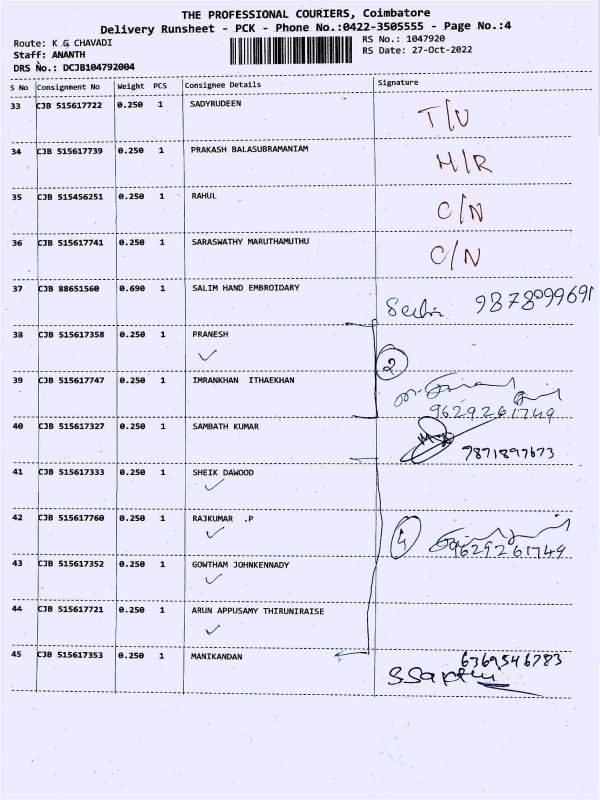 THE PROFESSIONAL COURIERS, Coimbatore
Delivery Runsheet - PCK - Phone No.:0422-3505555 - Page No.:4
Route: K G CHAVADI
RS No.: 1047920
Staff: ANANTH
RS Date: 27-Oct-2022
DRS No.: DCJB104792004
S No Consignment No Weight PCS Consignee Details Signature
33 CJB 515617722 0.250 1 SADYRUDEEN T/U
34 CJB 515617739 0.250 1 PRAKASH BALASUBRAMANIAM H/R
35 CJB 515456251 0.250 1 RAHUL C/N
36 CJB 515617741 0.250 1 SARASWATHY MARUTHAMUTHU C/N
37 CJB 88651560 0.690 1 SALIM HAND EMBROIDARY 9878099691
38 CJB 515617358 0.250 1 PRANESH
2
39 CJB 515617747 0.250 1 IMRANKHAN ITHAEKHAN
9629261749
40 CJB 515617327 0.250 1 SAMBATH KUMAR
7871897673
41 CJB 515617333 0.250 1 SHEIK DAWOOD
42 CJB 515617760 0.250 1 RAJKUMAR .P
9629261749
43 CJB 515617352 0.250 1 GOWTHAM JOHNKENNADY
44 CJB 515617721 0.250 1 ARUN APPUSAMY THIRUNIRAISE
45 CJB 515617353 0.250 1 MANIKANDAN 6369546783